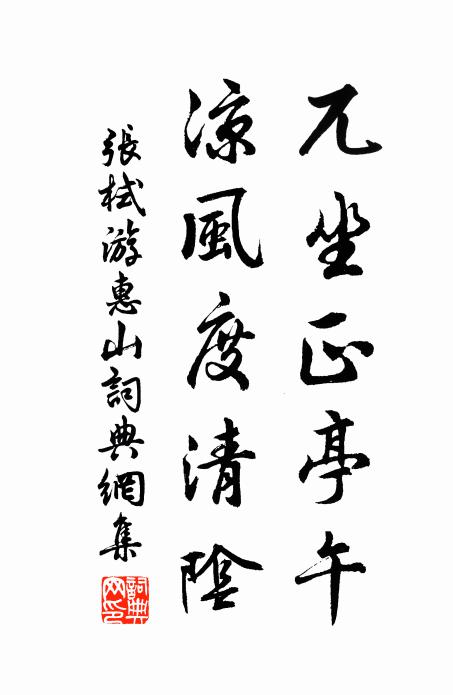 兀坐正亭午
涼風度清陰
張栻游惠山詞典網集
詞典
网印